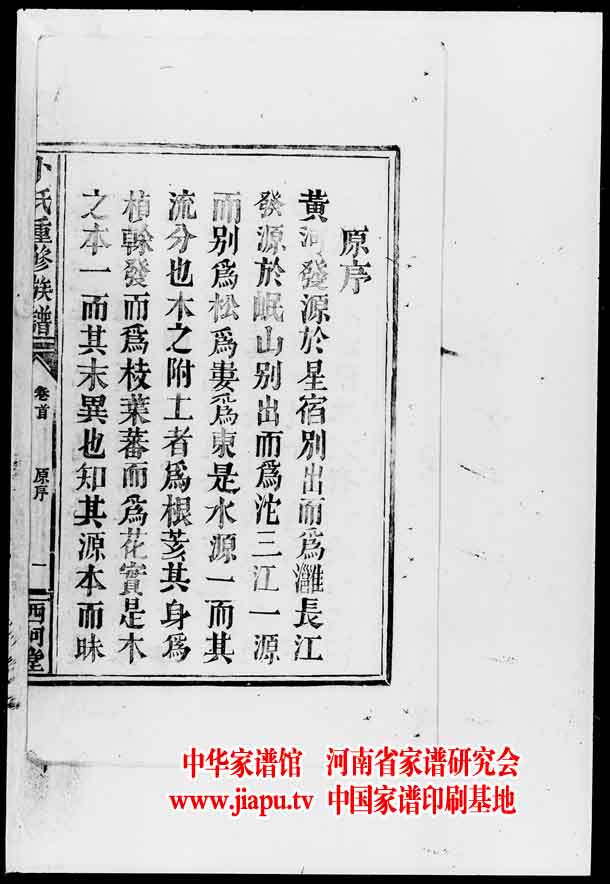 原序
黃河發源於星宿別出而爲灉長江
發源於岷山別出而爲沱三江一源
而別爲松爲婁爲東是水源一而其
流分也木之附土者爲根荄其身爲
楨幹發而爲枝葉蕃而爲花實是木
之本一而其末異也知其源本而昧
卜氏重修族譜
卷首
原序
一
西河堂
中华家谱馆 河南省家谱研究会
www.jiapu.tv 中国家谱印刷基地